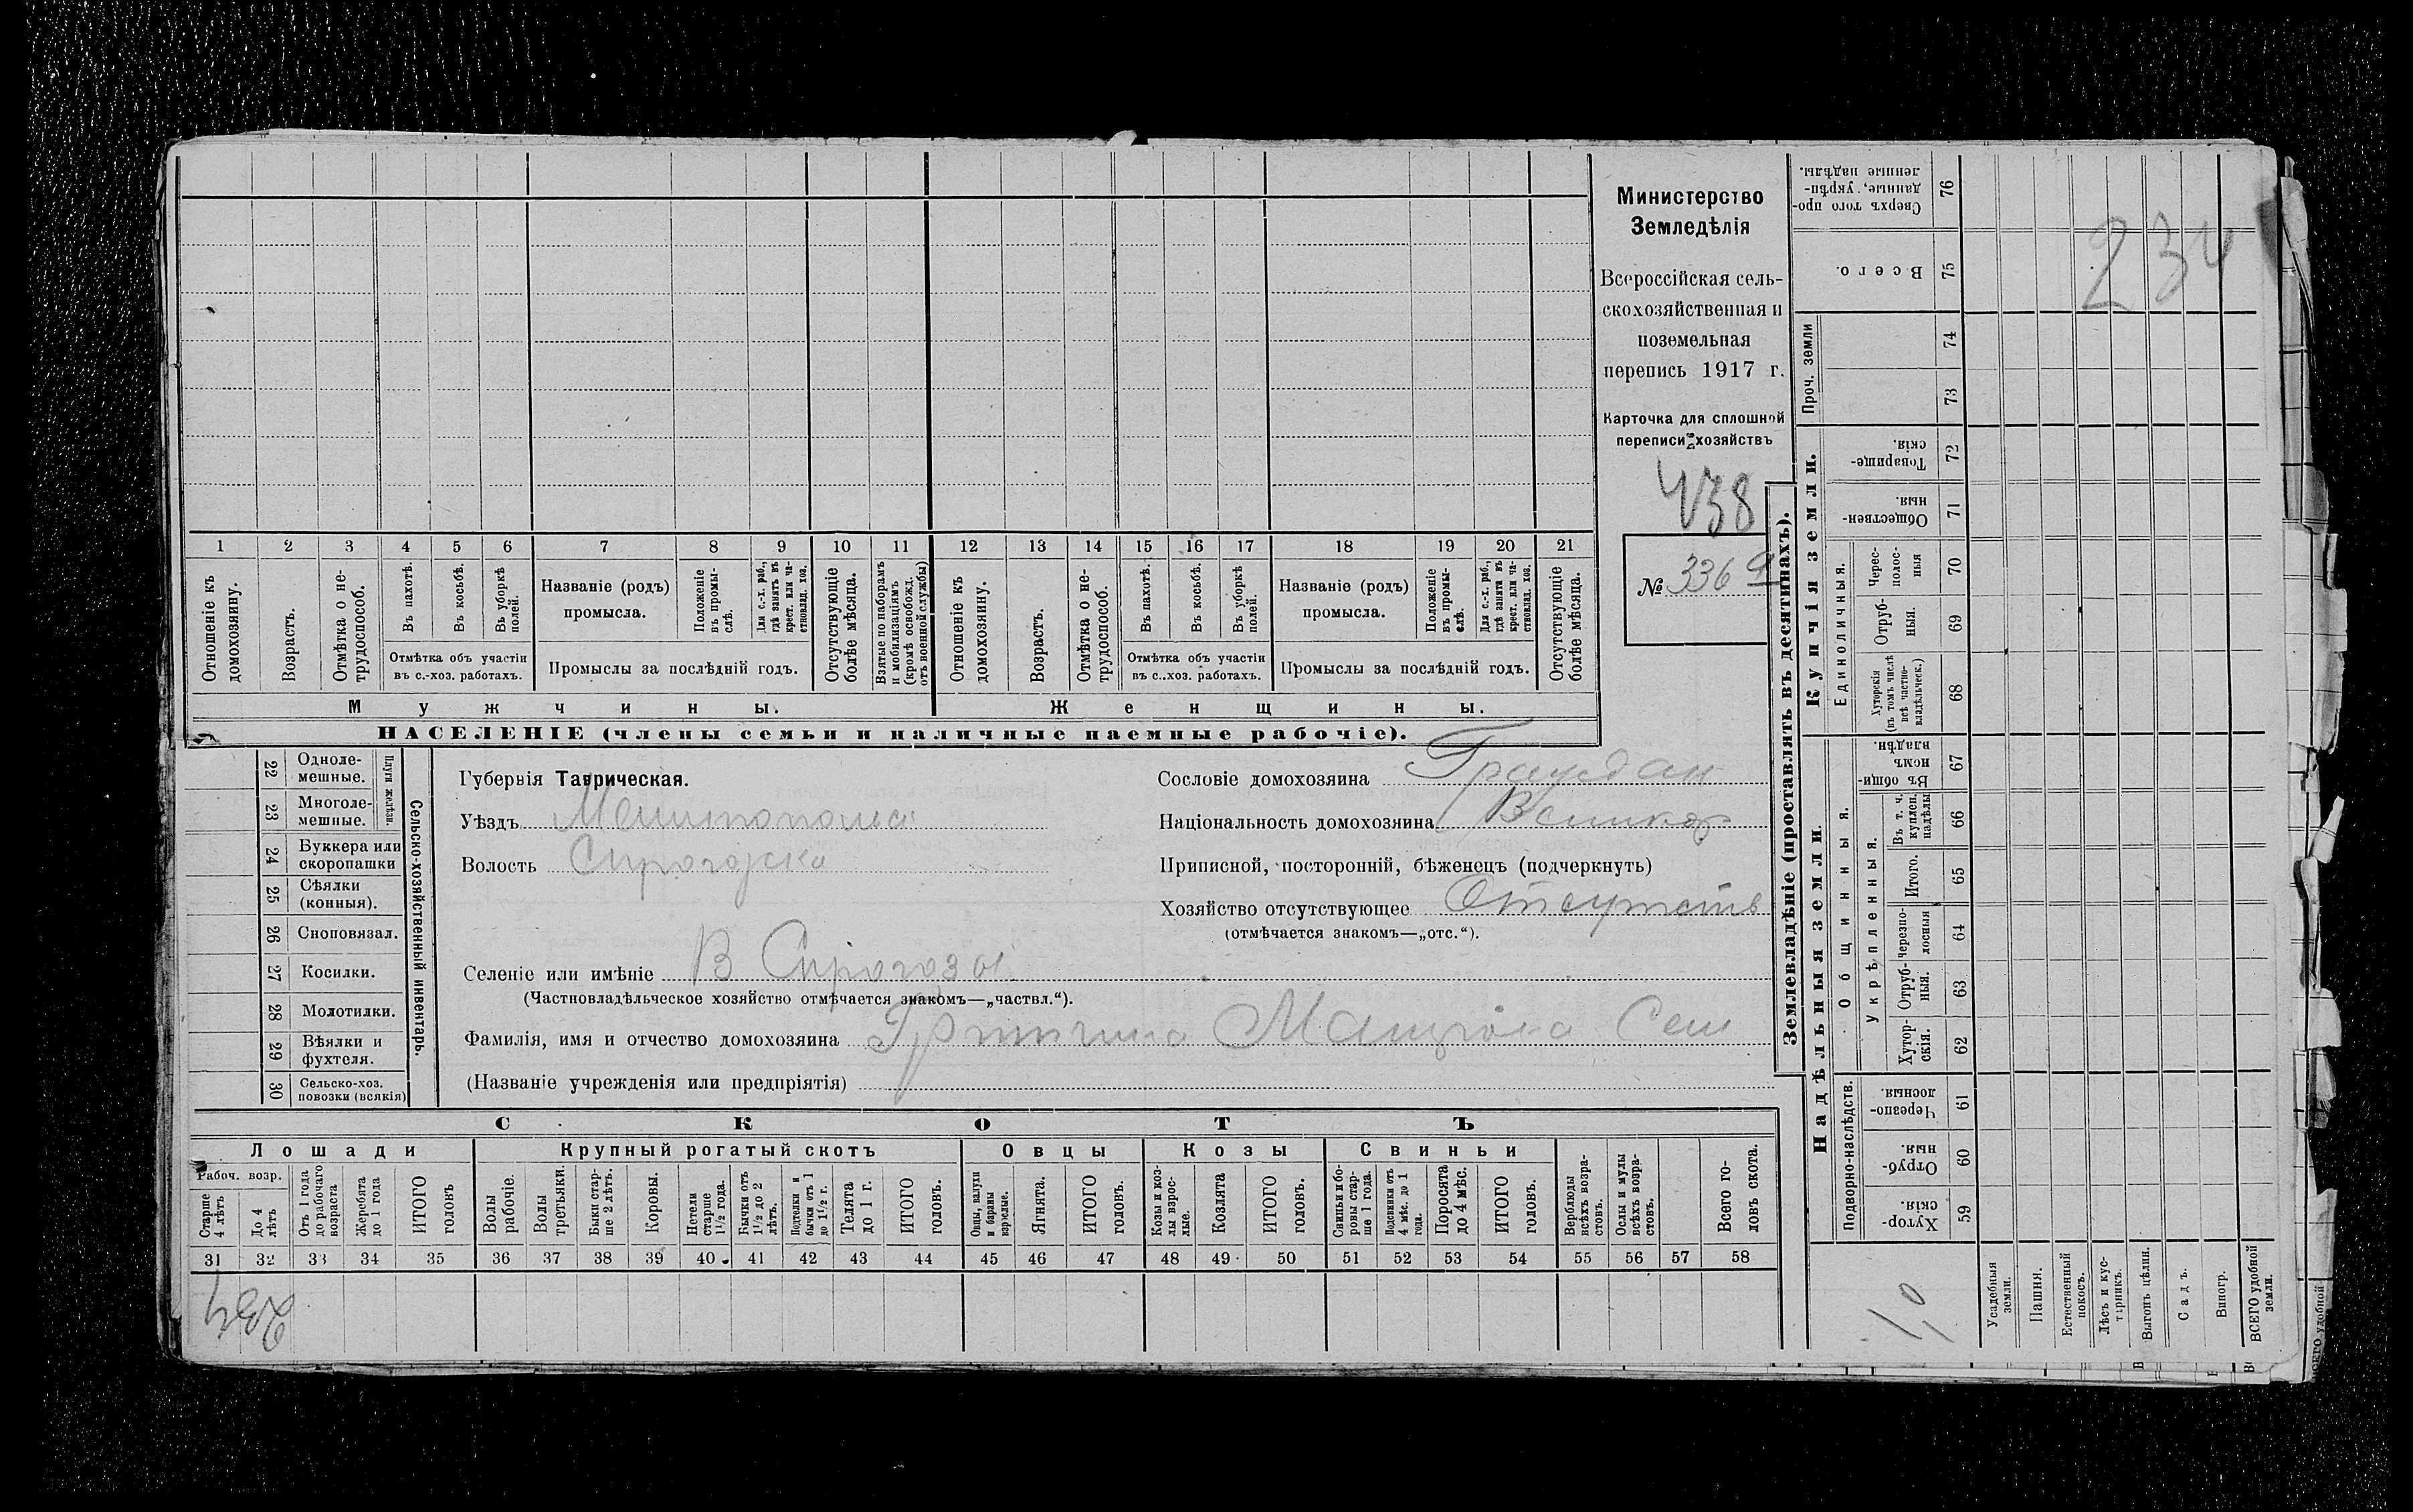 Министерство
Земледѣлія
Всероссійская сель-
скохозяйственная и
поземельная
перепись 1917 г.
Карточка для сплошной
переписи хозяйствъ
438
№ 336
1 2 3 4 5 6 7 8 9 10 11 12 13 14 15 16 17 18 19 20 21
Отношеніе къ домохозяину.
Возрастъ.
Отмѣтка о не-
трудоспособ.
Въ пахотѣ.
Въ косьбѣ.
Въ уборкѣ
полей.
Отмѣтка объ участіи
въ с.-хоз. работахъ.
Названіе (родъ)
промысла.
Положеніе
въ промы-
слѣ.
Для с.-х. раб.,
гдѣ занятъ въ
крест. или ча-
стновлад. хоз.
Промыслы за послѣдній годъ.
Отсутствующіе
болѣе мѣсяца.
Взятые по наборамъ
и мобилизаціямъ
(кромѣ освобожд.
отъ военной службы)
Отношеніе къ
домохозяину.
Возрастъ.
Отмѣтка о не-
трудоспособ.
Въ пахотѣ.
Въ косьбѣ.
Въ уборкѣ
полей.
Отмѣтка объ участіи
въ с.-хоз. работахъ.
Названіе (родъ)
промысла.
Положеніе
въ промы-
слѣ.
Для с.-х. раб.,
гдѣ занята въ
крест. или ча-
стновлад. хоз.
Промыслы за послѣдній годъ.
Отсутствующіе
болѣе мѣсяца.
Мужчины.
Женщины.
НАСЕЛЕНІЕ (члены семьи и наличные наемные рабочіе).
22 Одноле-
мешные.
23 Многоле-
мешные.
Плуги желѣзн.
24 Буккера или
скоропашки
25 Сѣялки
(конныя).
26 Сноповязал.
27 Косилки.
28 Молотилки.
29 Вѣялки и
фухтеля.
30 Сельско-хоз.
повозки (всякія)
Сельско-хозяйственный инвентарь.
Губернія Таврическая.
Уѣздъ
Волость
Селеніе или имѣніе В Сирогозы
(Частновладѣльческое хозяйство отмѣчается знакомъ—„частвл.“).
Фамилія, имя и отчество домохозяина
(Названіе учрежденія или предпріятія)
Сословіе домохозяина
Національность домохозяина
Приписной, посторонній, бѣженецъ (подчеркнуть)
Хозяйство отсутствующее Отсутств
(отмѣчается знакомъ—„отс.“).
СКОТЪ
Лошади
Крупный рогатый скотъ
Овцы
Козы
Свиньи
Рабоч. возр.
Старше
4 лѣтъ
До 4
лѣтъ
Отъ 1 года
до рабочаго
возраста
Жеребята
до 1 года
ИТОГО
головъ
Волы
рабочіе.
Волы
третьяки.
Быки стар-
ше 2 лѣтъ.
Коровы.
Нетели
старше
1½ года.
Бычки отъ
1½ до 2
лѣтъ.
Подтелки и
бычки отъ 1
до 1½ г.
Телята
до 1 г.
ИТОГО
головъ.
Овцы, валухи
и бараны
взрослые.
Ягнята.
ИТОГО
головъ.
Козы и коз-
лы взрос-
лые.
Козлята
ИТОГО
головъ.
Свиньи и бо-
ровы стар-
ше 1 года.
Подсвинки отъ
4 мѣс. до 1
года.
Поросята
до 4 мѣс.
ИТОГО
головъ.
Верблюды
всѣхъ возра-
стовъ.
Ослы и мулы
всѣхъ возра-
стовъ.
Всего го-
ловъ скота.
31 32 33 34 35 36 37 38 39 40 41 42 43 44 45 46 47 48 49 50 51 52 53 54 55 56 57 58
234
Землевладѣніе (проставлять въ десятинахъ).
Купчія земли.
Надѣльныя земли.
Проч. земли
Сверхъ того про-
данные, укрѣп-
ленные надѣлы.
76
Всего.
75
74
73
Товарище-
скія.
72
Обществен-
ныя.
71
Единоличныя.
Черес-
полос-
ныя
70
Отруб-
ныя.
69
Хуторскія
(въ томъ числѣ
всѣ частно-
владѣльческ.)
68
Общинныя.
Въ общи-
номъ
владѣн.
67
Укрѣпленныя.
Въ т. ч.
куплен.
надѣлы
66
Итого.
65
черезпо-
лосныя
64
Отруб-
ныя.
63
Хутор-
скія.
62
Подворно-наслѣдств.
Черезпо-
лосныя.
61
Отруб-
ныя.
60
Хутор-
скія.
59
Усадебныя
земли.
Пашня.
Естественный
покосъ.
Лѣсъ и кус-
тарникъ.
Выгонъ цѣлин.
Садъ.
Виногр.
ВСЕГО удобной
земли.
234